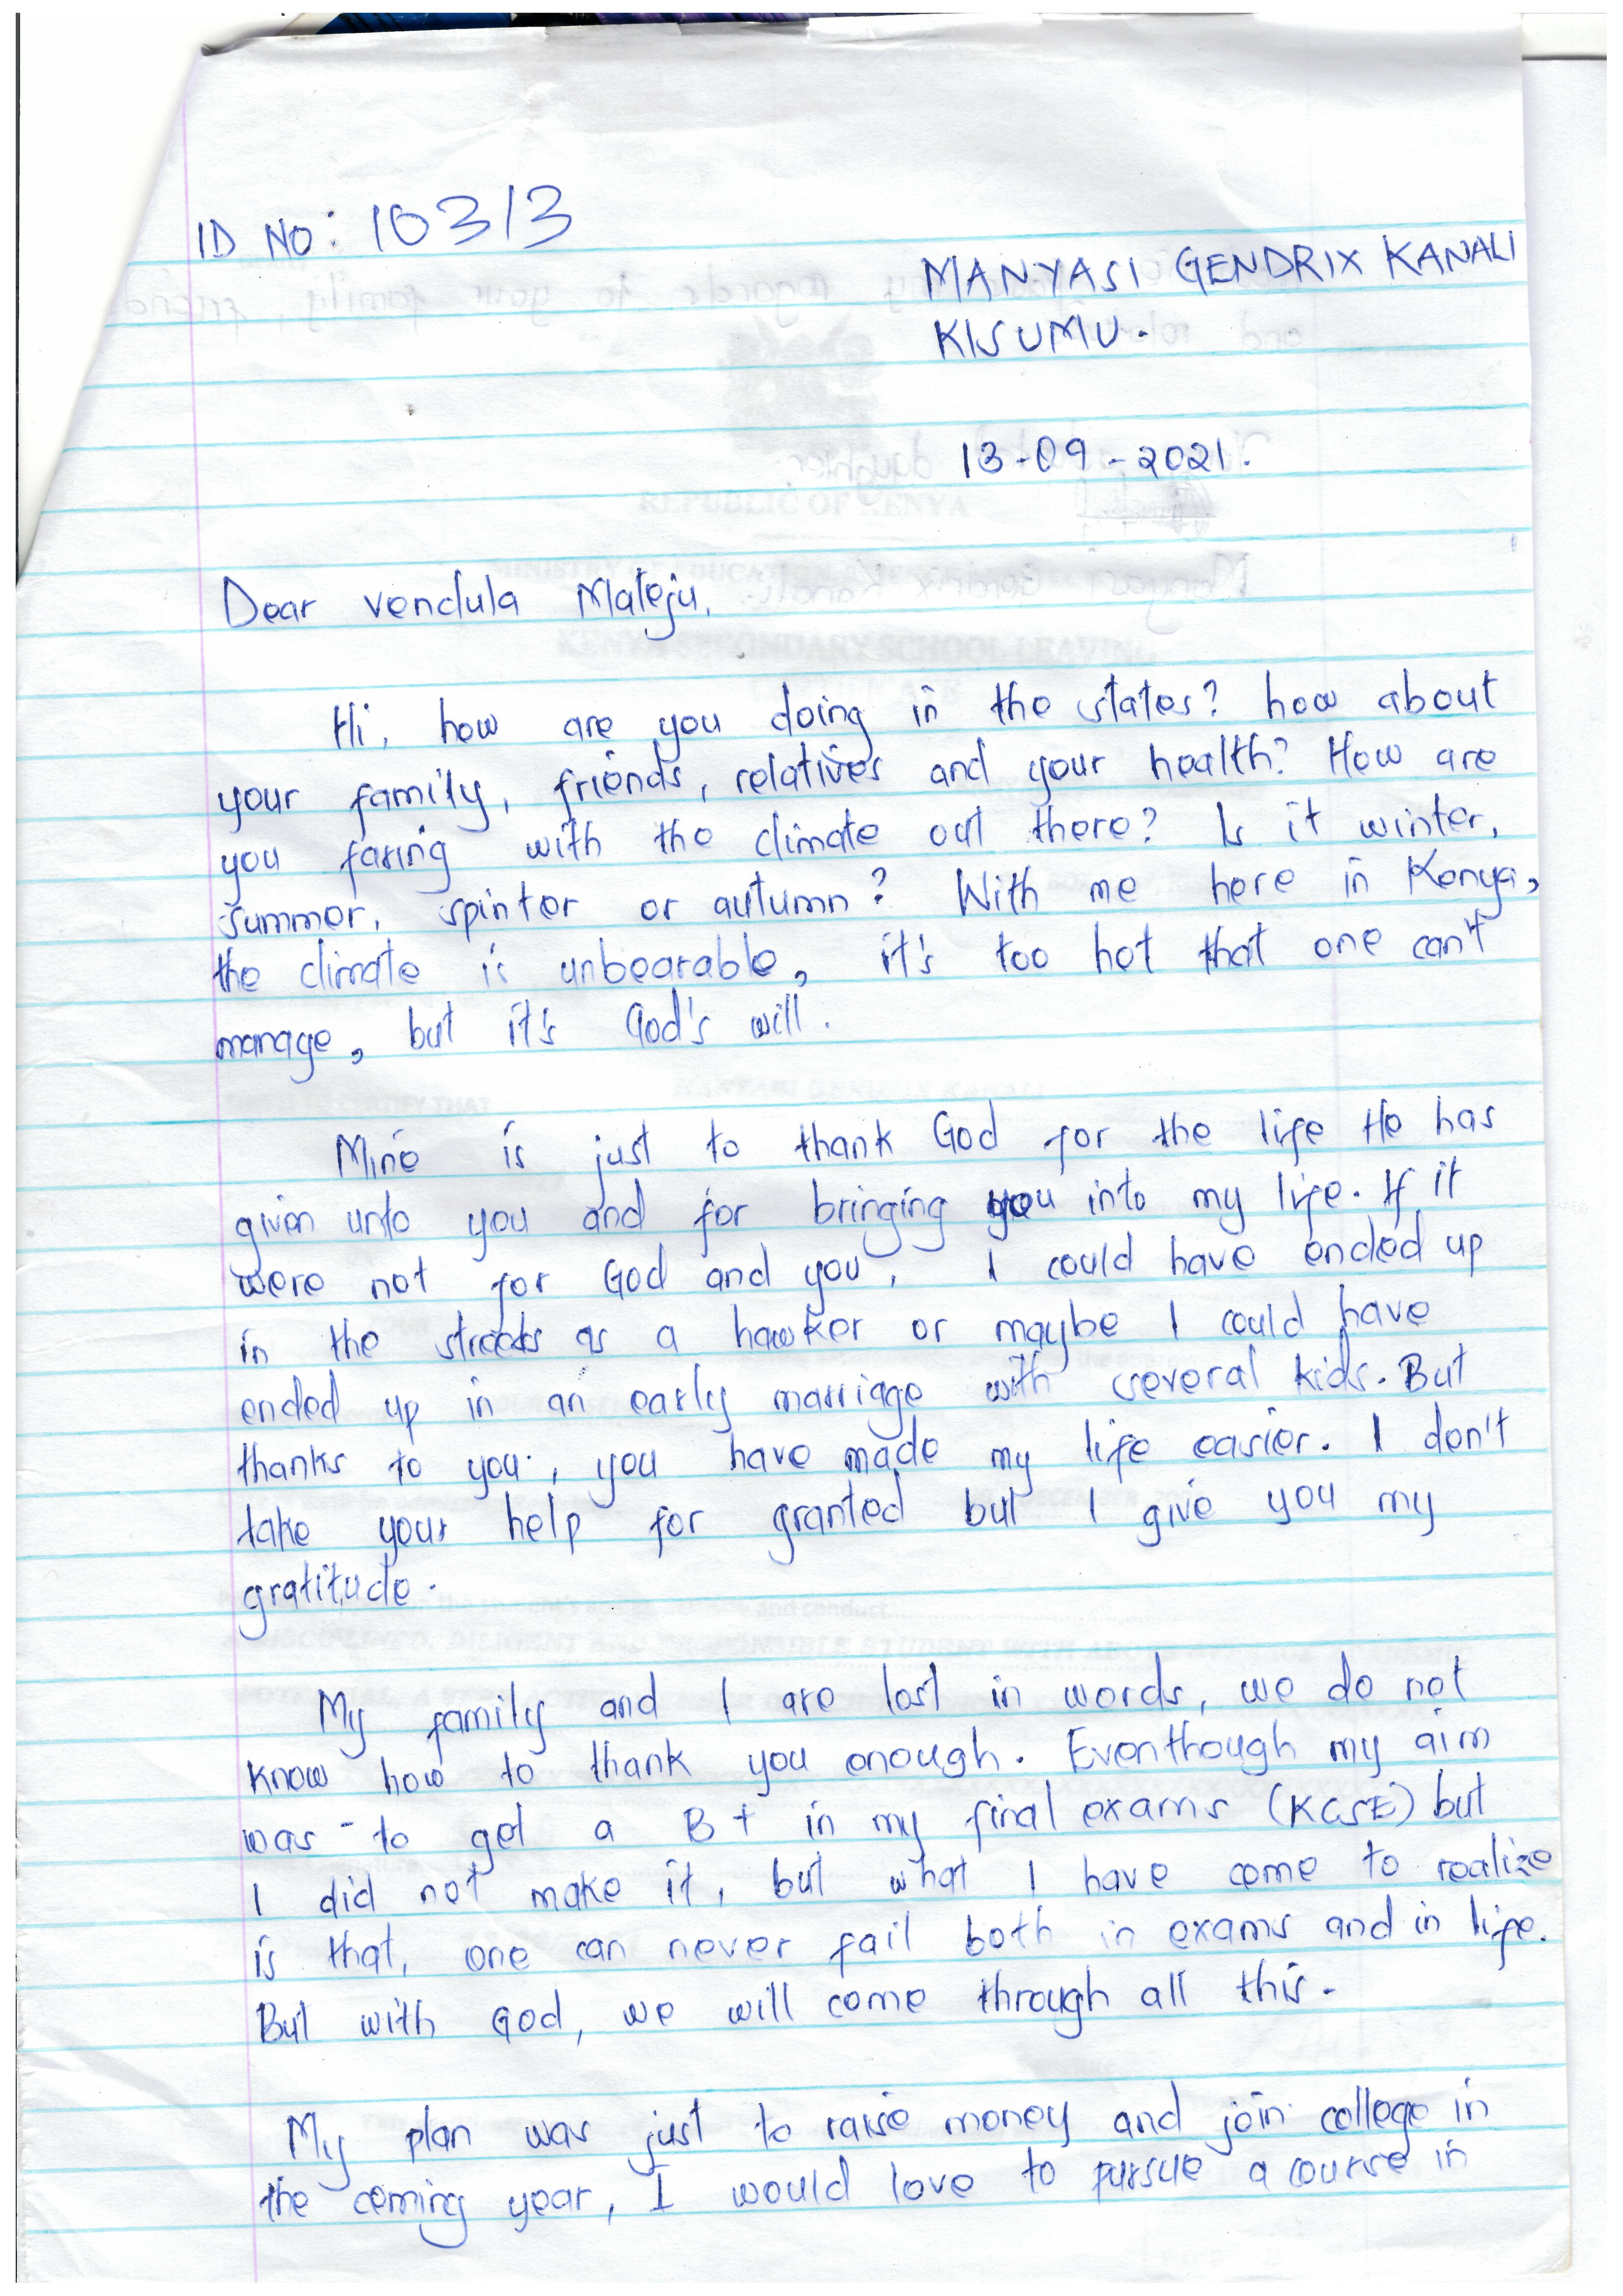 ID NO: 10313
MANYASI GENDRIX KANALI
KISUMU.
13-09-2021.
REPUBLIC OF KENYA
Dear vendula Mateju,
KENYA SECONDARY SCHOOL LEAVING
Hi, how are you doing in the states? how about
your family, friends, relatives and your health? How are
you faring with the climate out there? Is it winter,
summer, spinter or autumn? With me here in Kenya,
the climate is unbearable, it's too hot that one can't
manage, but it's God's will.
Mine is just to thank God for the life He has
given unto you and for bringing you into my life. If it
were not for God and you, I could have ended up
in the streets as a hawker or maybe I could have
ended up in an early marriage with several kids. But
thanks to you, you have made my life easier. I don't
take your help for granted but I give you my
gratitude.
My family and I are lost in words, we do not
know how to thank you enough. Eventhough my aim
was - to get a B+ in my final exams (KCSE) but
I did not make it, but what I have come to realize
is that, one can never fail both in exams and in life.
But with God, we will come through all this.
My plan was just to raise money and join college in
the coming year, I would love to pursue a course in